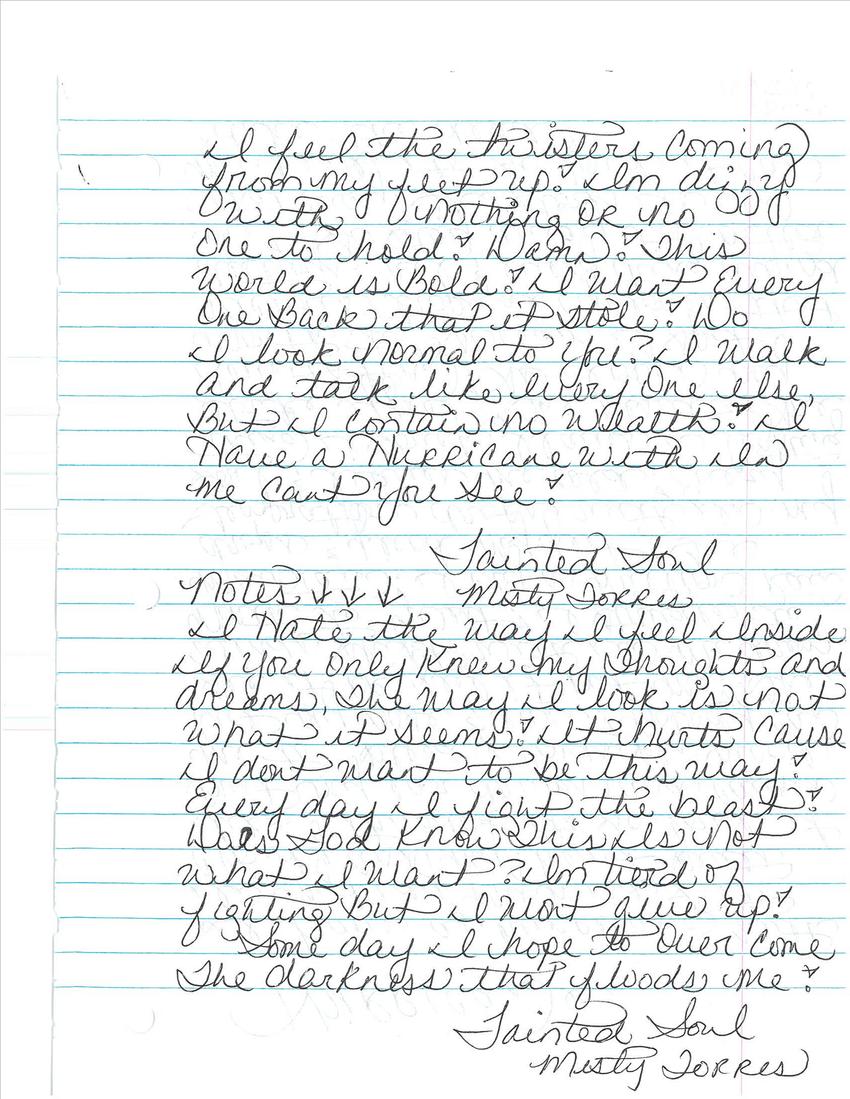 I feel the twisters coming
from my feet up! Im dizzy
with nothing OR no
One to hold! Damn! This
World is Bold! I want Every
One Back that it stole! Do
I look normal to you? I walk
and talk like every One else,
But I contain no wealth! I
Have a HuRRicane with In
me cant you see!
Tainted Soul
Notes ↓ ↓ ↓ Misty ToRRes
I Hate the way I feel Inside
If you only Knew my thoughts and
dreams, The way I look is not
what it seems! It hurts cause
I dont want to be this way!
Every day I fight the beast!
Does God Know This Is Not
what I want? Im tierd of
fighting But I wont give up!
Some day I hope to Over come
The darkness that floods me!
Tainted Soul
Misty ToRRes